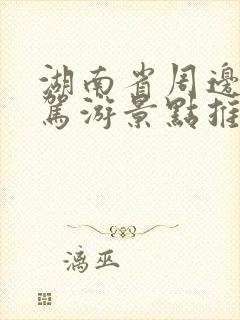 湖南省周邊
駕游景點推
漓巫